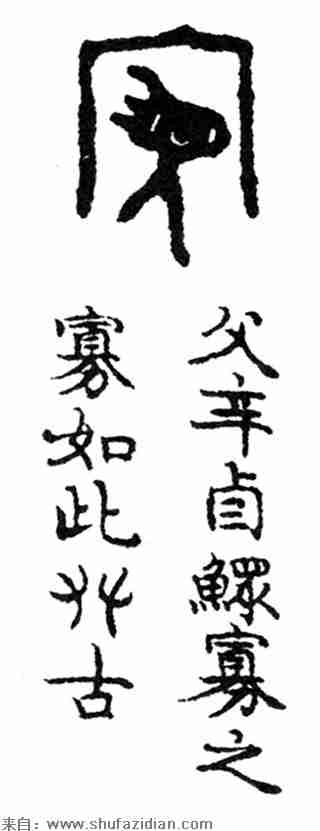 寡
父辛卣鰥寡之
寡如此艸古
来自：www.shufazidian.com